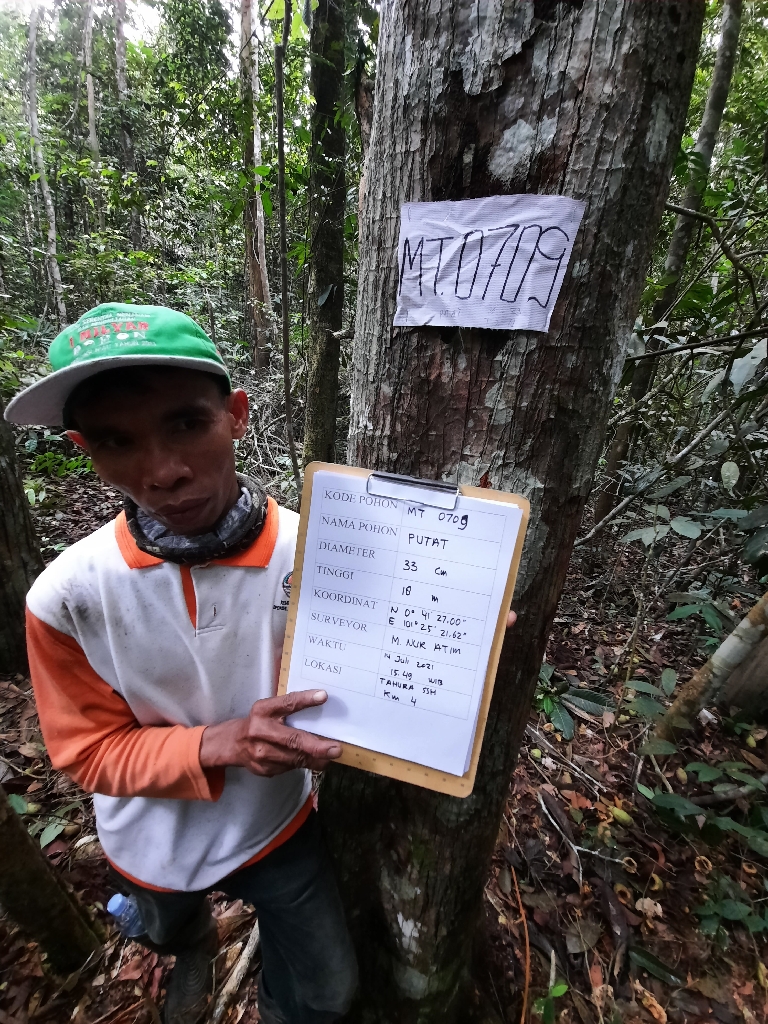 MT.0709
KODE POHON MT 0709
NAMA POHON PUTAT
DIAMETER 33 cm
TINGGI 18 m
KOORDINAT N 0° 41' 27.00"
E 101° 25' 21.62"
SURVEYOR M. NUR ATIM
WAKTU 14 Juli 2021
15.49 WIB
LOKASI TAHURA SSH
Km 4